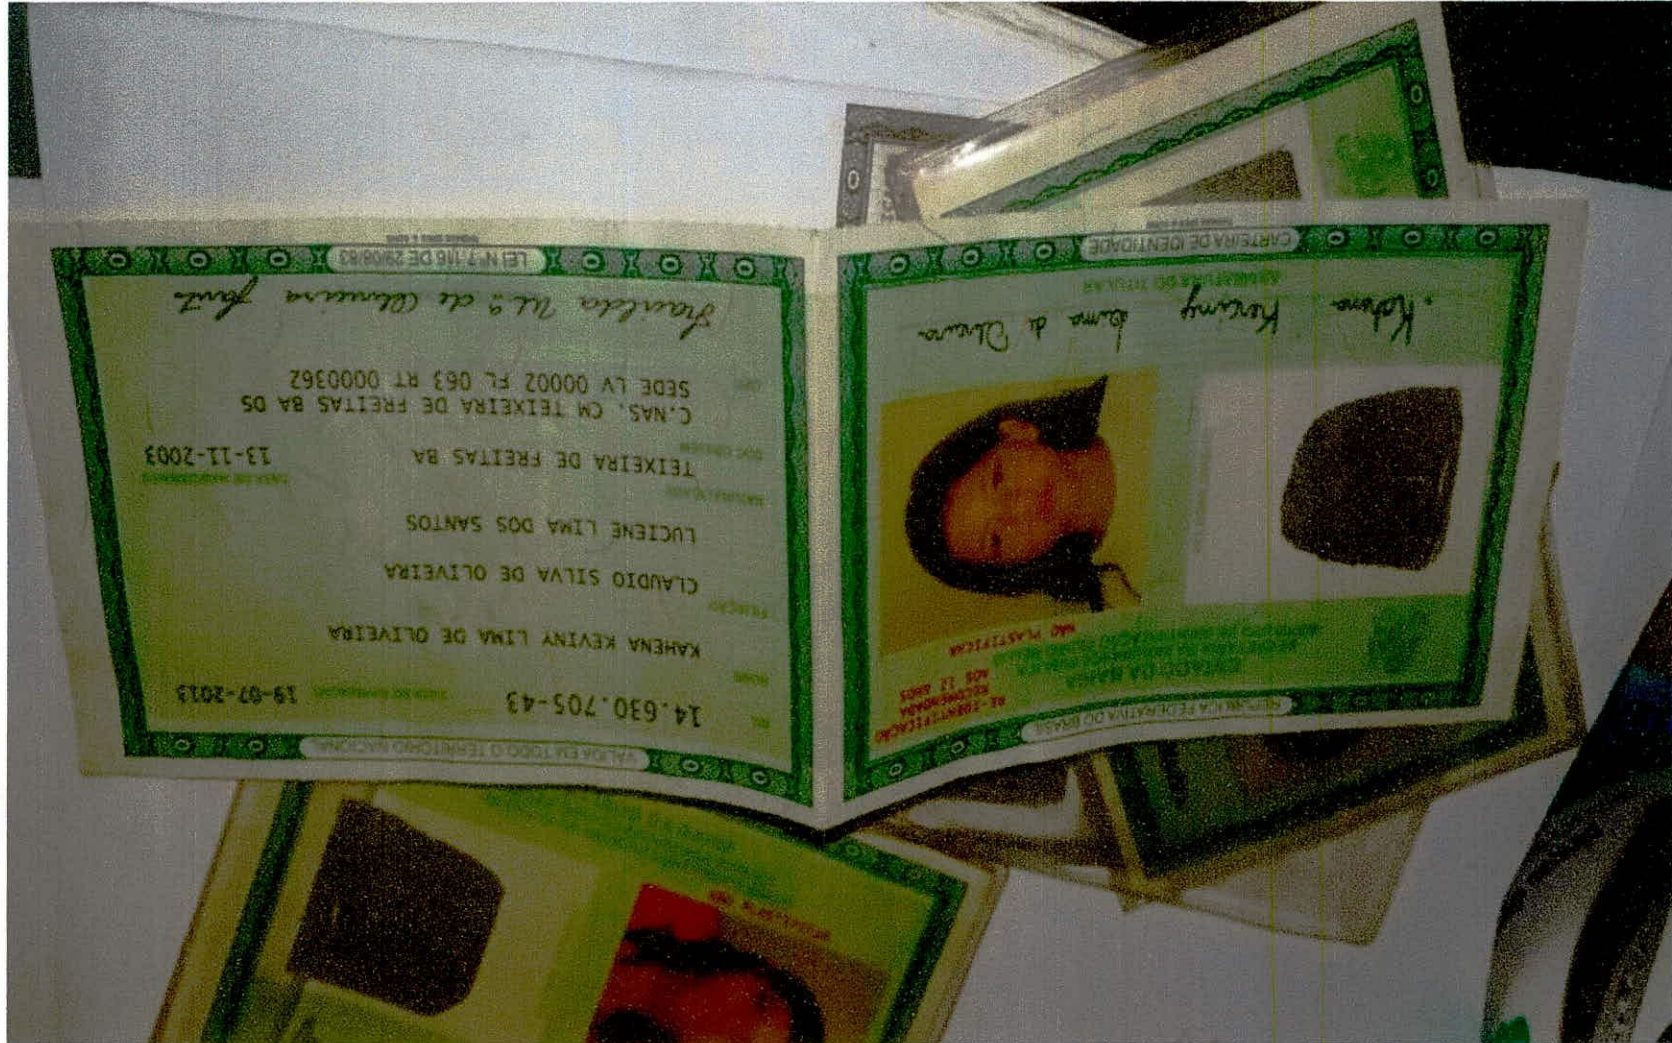 VÁLIDA EM TODO O TERRITÓRIO NACIONAL
RG 14.630.705-43 DATA DE EXPEDIÇÃO 19-07-2013
NOME KAHENA KEVINY LIMA DE OLIVEIRA
FILIAÇÃO CLAUDIO SILVA DE OLIVEIRA
LUCIENE LIMA DOS SANTOS
NATURALIDADE DATA DE NASCIMENTO
TEIXEIRA DE FREITAS BA 13-11-2003
DOC ORIGEM C.NAS. CM TEIXEIRA DE FREITAS BA DS
SEDE LV 00002 FL 063 RT 0000362
CPF
LEI Nº 7.116 DE 29/08/83
REPÚBLICA FEDERATIVA DO BRASIL
ESTADO DA BAHIA
RE-IDENTIFICAÇÃO
RECOMENDADA
AOS 12 ANOS
NÃO PLASTIFICAR
Keviny Lima de
ASSINATURA DO TITULAR
CARTEIRA DE IDENTIDADE